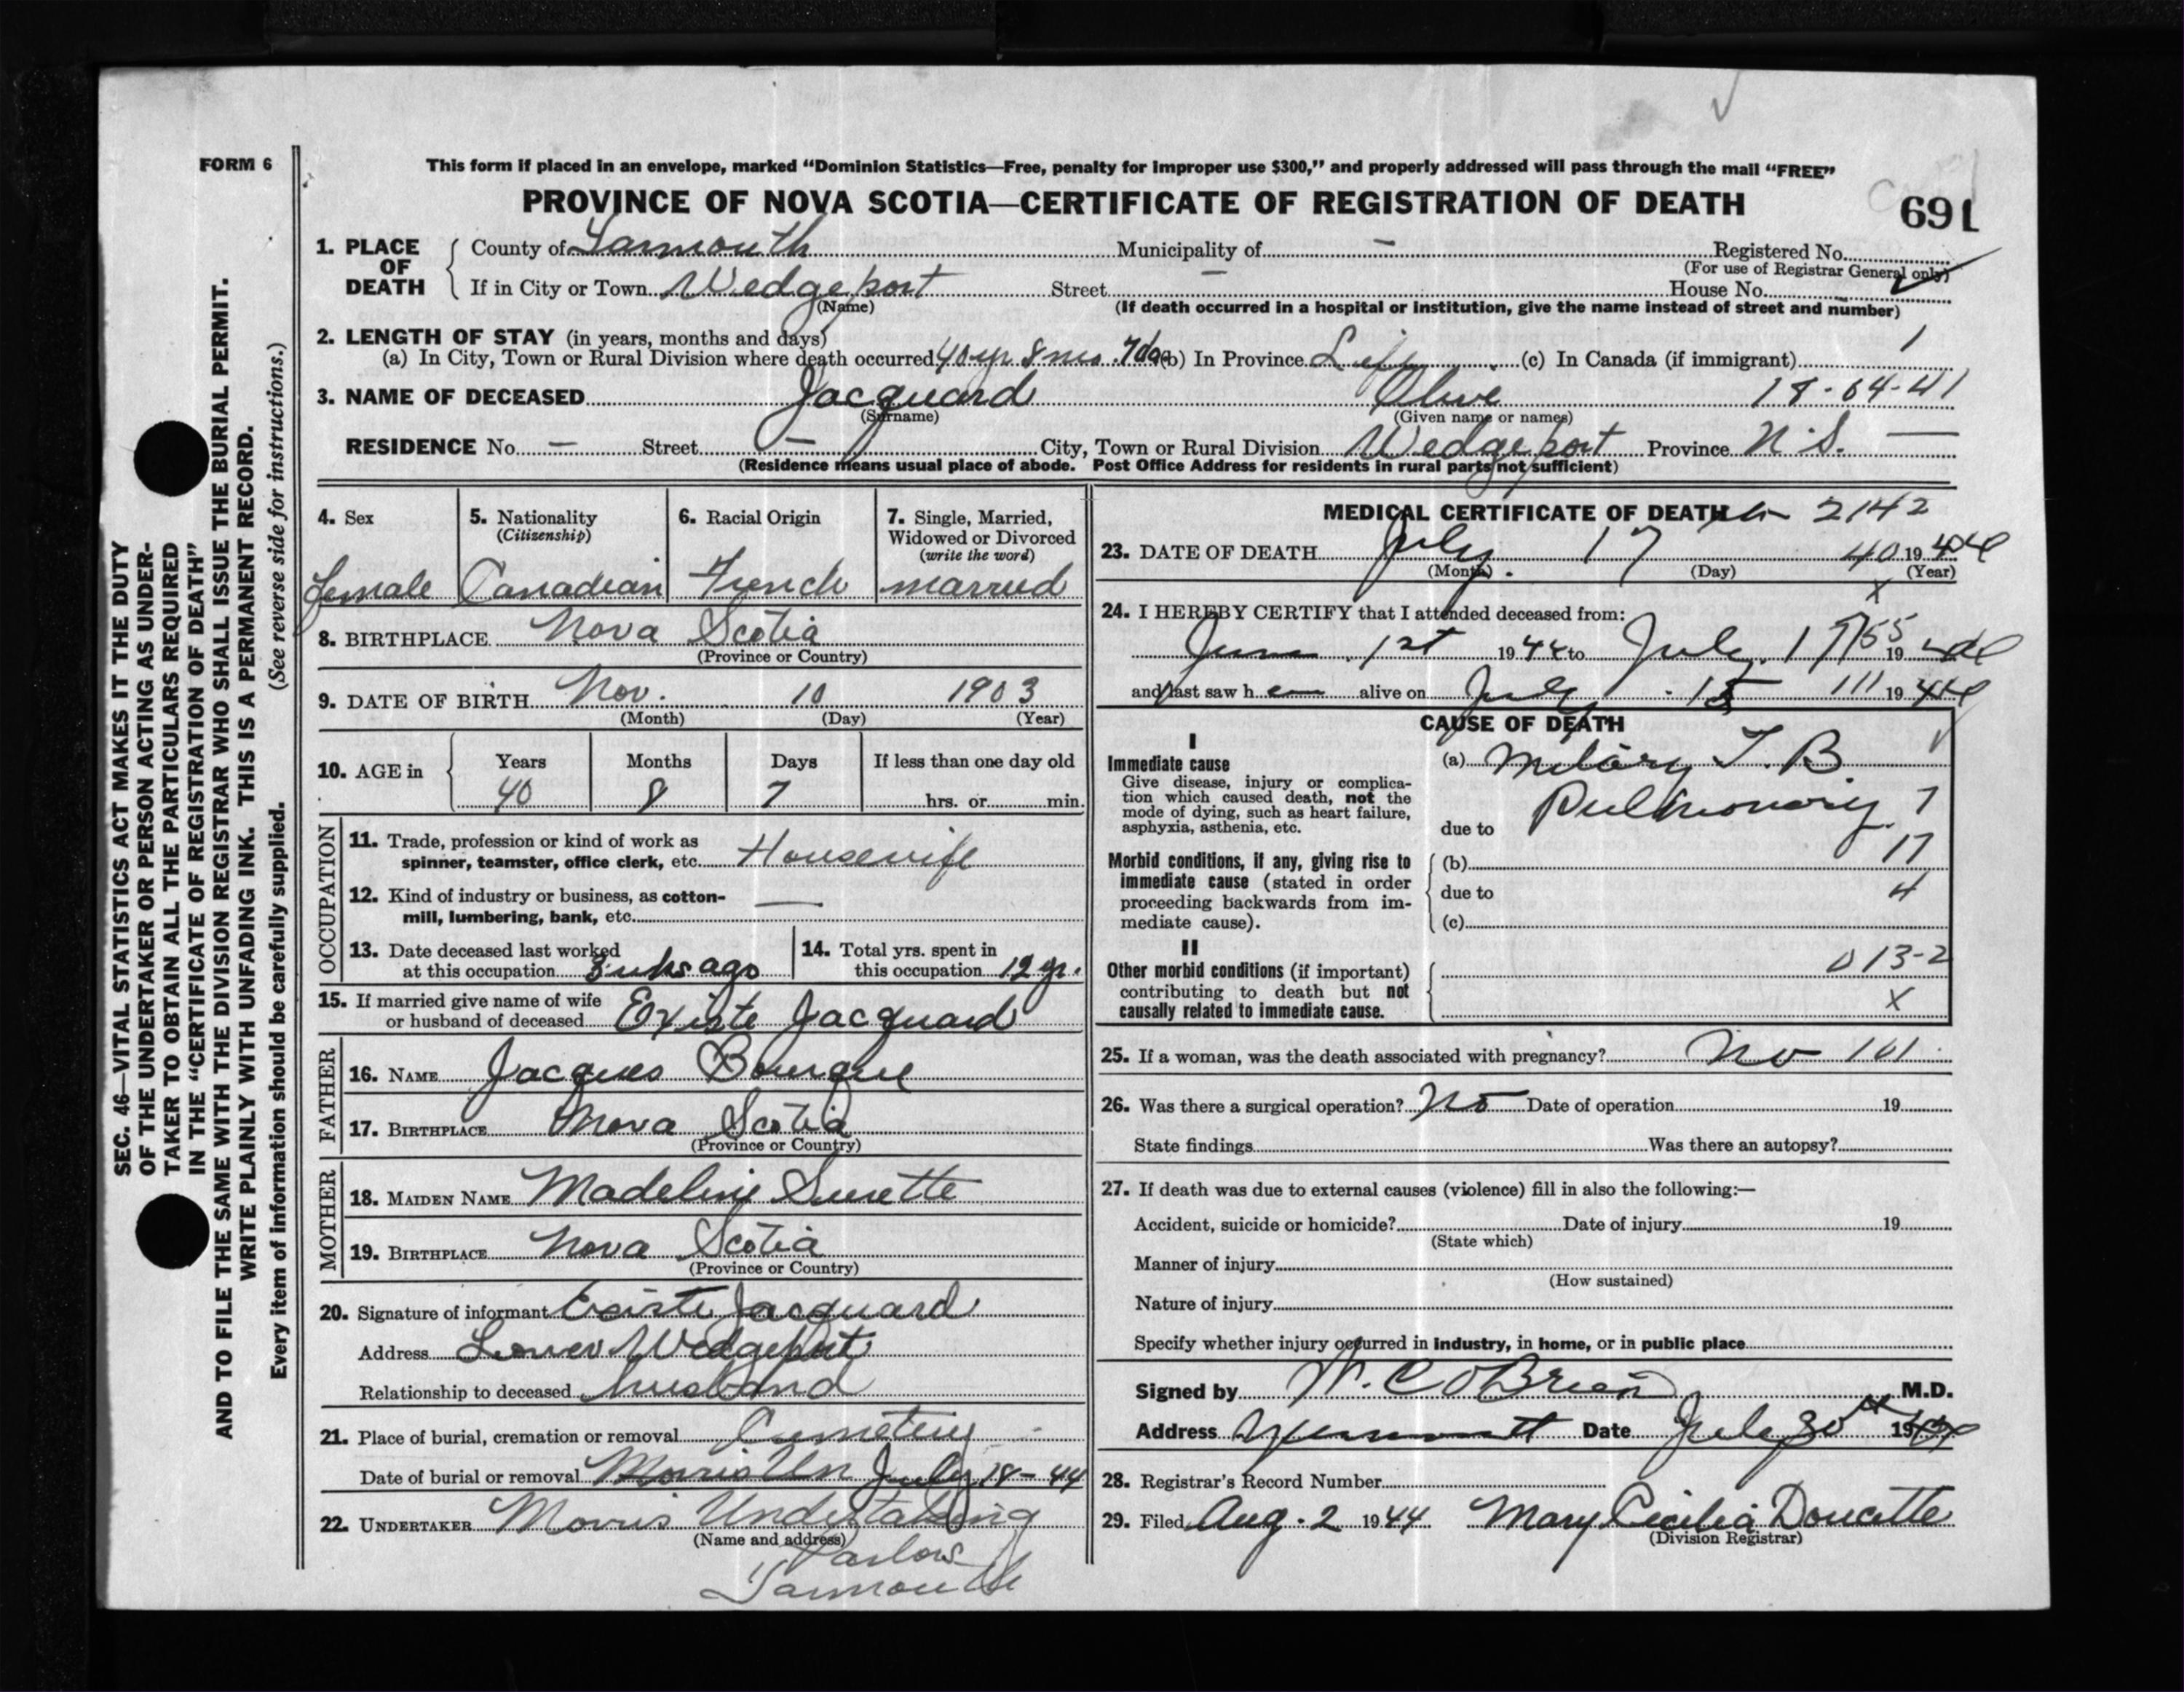 FORM 6
This form if placed in an envelope, marked “Dominion Statistics—Free, penalty for improper use $300,” and properly addressed will pass through the mail “FREE”
PROVINCE OF NOVA SCOTIA—CERTIFICATE OF REGISTRATION OF DEATH
691
1. PLACE OF DEATH
County of Yarmouth Municipality of — Registered No.
(For use of Registrar General only)
If in City or Town Wedgeport Street — House No.
(Name) (If death occurred in a hospital or institution, give the name instead of street and number)
2. LENGTH OF STAY (in years, months and days)
(a) In City, Town or Rural Division where death occurred 40 yr 8 mos. 7 da (b) In Province Life (c) In Canada (if immigrant) 1
3. NAME OF DECEASED Jacquard Olive 18-64-41
(Surname) (Given name or names)
RESIDENCE No. — Street — City, Town or Rural Division Wedgeport Province N.S. —
(Residence means usual place of abode. Post Office Address for residents in rural parts not sufficient)
4. Sex
Female
5. Nationality
(Citizenship)
Canadian
6. Racial Origin
French
7. Single, Married, Widowed or Divorced
(write the word)
married
8. BIRTHPLACE Nova Scotia
(Province or Country)
9. DATE OF BIRTH Nov. 10 1903
(Month) (Day) (Year)
10. AGE in Years Months Days If less than one day old
40 8 7 hrs. or min.
OCCUPATION
11. Trade, profession or kind of work as
spinner, teamster, office clerk, etc. Housewife
12. Kind of industry or business, as cotton-
mill, lumbering, bank, etc. —
13. Date deceased last worked
at this occupation 3 wks ago
14. Total yrs. spent in
this occupation 12 yr.
15. If married give name of wife
or husband of deceased Existe Jacquard
FATHER
16. NAME Jacques Bourque
17. BIRTHPLACE Nova Scotia
(Province or Country)
MOTHER
18. MAIDEN NAME Madeline Surette
19. BIRTHPLACE Nova Scotia
(Province or Country)
20. Signature of informant Existe Jacquard
Address Lower Wedgeport
Relationship to deceased husband
21. Place of burial, cremation or removal Cemetery
Date of burial or removal Morris Un July 18-44
22. UNDERTAKER Morris Undertaking
(Name and address)
Parlors
Yarmouth
MEDICAL CERTIFICATE OF DEATH 2142
23. DATE OF DEATH July 17 40 1944
(Month) (Day) (Year)
X
24. I HEREBY CERTIFY that I attended deceased from:
June 1st 1944 to July 17 55 1944
and last saw her alive on July 15 111 1944
CAUSE OF DEATH
I
Immediate cause
Give disease, injury or complica-
tion which caused death, not the
mode of dying, such as heart failure,
asphyxia, asthenia, etc.
(a) Miliary T.B.
due to Pulmonary 7
Morbid conditions, if any, giving rise to
immediate cause (stated in order
proceeding backwards from im-
mediate cause).
(b) 17
due to 4
(c)
II
Other morbid conditions (if important)
contributing to death but not
causally related to immediate cause.
013-2
X
25. If a woman, was the death associated with pregnancy? No 101
26. Was there a surgical operation? No Date of operation 19
State findings Was there an autopsy?
27. If death was due to external causes (violence) fill in also the following:—
Accident, suicide or homicide? Date of injury 19
(State which)
Manner of injury
(How sustained)
Nature of injury
Specify whether injury occurred in industry, in home, or in public place
Signed by W. C O'Brien M.D.
Address Date July 30 1944
28. Registrar's Record Number
29. Filed Aug. 2 1944 Mary Cecilia Doucette
(Division Registrar)
SEC. 46—VITAL STATISTICS ACT MAKES IT THE DUTY
OF THE UNDERTAKER OR PERSON ACTING AS UNDER-
TAKER TO OBTAIN ALL THE PARTICULARS REQUIRED
IN THE “CERTIFICATE OF REGISTRATION OF DEATH”
AND TO FILE THE SAME WITH THE DIVISION REGISTRAR WHO SHALL ISSUE THE BURIAL PERMIT.
WRITE PLAINLY WITH UNFADING INK. THIS IS A PERMANENT RECORD.
Every item of information should be carefully supplied. (See reverse side for instructions.)